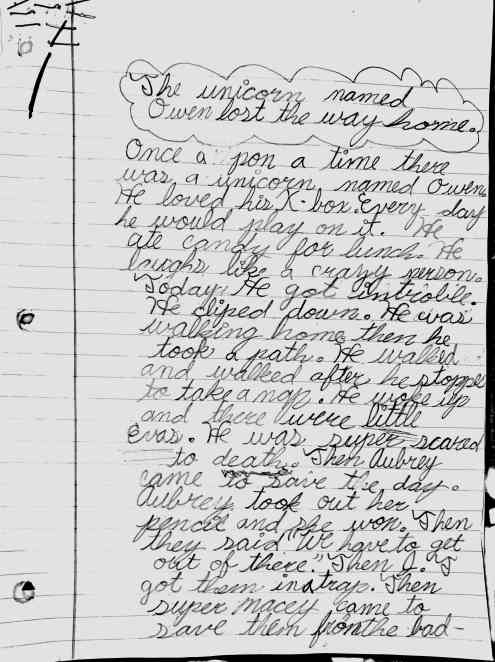 The unicorn named
Owen lost the way home.
Once a pon a time there
was a unicorn named Owen.
He loved his X-box. Every day
he would play on it. He
ate candy for lunch. He
laughs like a crazy person.
Today, He got introbile.
He sliped down. He was
walking home then he
took a path. He walked
and walked after he stoppe
to take a nap. He woke up
and there were little
Evas. He was super scared
to death. Then Aubrey
came to save the day.
Aubrey took out her
pencil and she won. Then
they said "We have to get
out of there." Then J.T
got them in a trap. Then
super macey came to
save them from the bad-